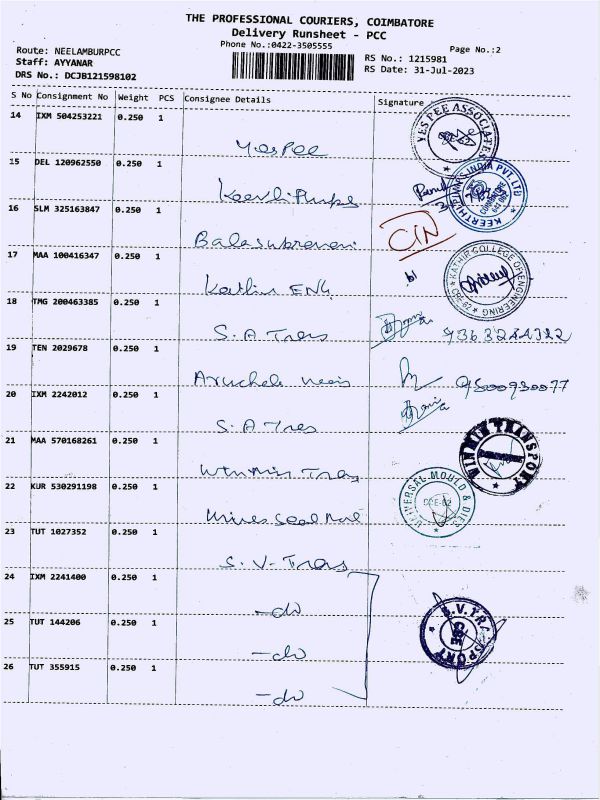 THE PROFESSIONAL COURIERS, COIMBATORE
Delivery Runsheet - PCC
Phone No.:0422-3505555
Page No.:2
Route: NEELAMBURPCC
RS No.: 1215981
Staff: AYYANAR
RS Date: 31-Jul-2023
DRS No.: DCJB121598102
S No Consignment No Weight PCS Consignee Details Signature
14 IXM 504253221 0.250 1 Yes Pee YES PEE ASSOCIATES
15 DEL 120962550 0.250 1 KEERTHI PUMPS INDIA PVT LTD
16 SLM 325163847 0.250 1 Balasubramani
17 MAA 100416347 0.250 1 Kathir ENG KATHIR COLLEGE OF ENGINEERING
18 TMG 200463385 0.250 1 S.A Trans
19 TEN 2029678 0.250 1 9500930077
20 IXM 2242012 0.250 1 S.A Trans
21 MAA 570168261 0.250 1 Win Win Trans WIN WIN TRANSPORT
22 KUR 530291198 0.250 1 UNIVERSAL MOULD & DIES
23 TUT 1027352 0.250 1 S.V. Trans
24 IXM 2241400 0.250 1 -do
25 TUT 144206 0.250 1 -do S.V.TRANSPORT
26 TUT 355915 0.250 1 -do